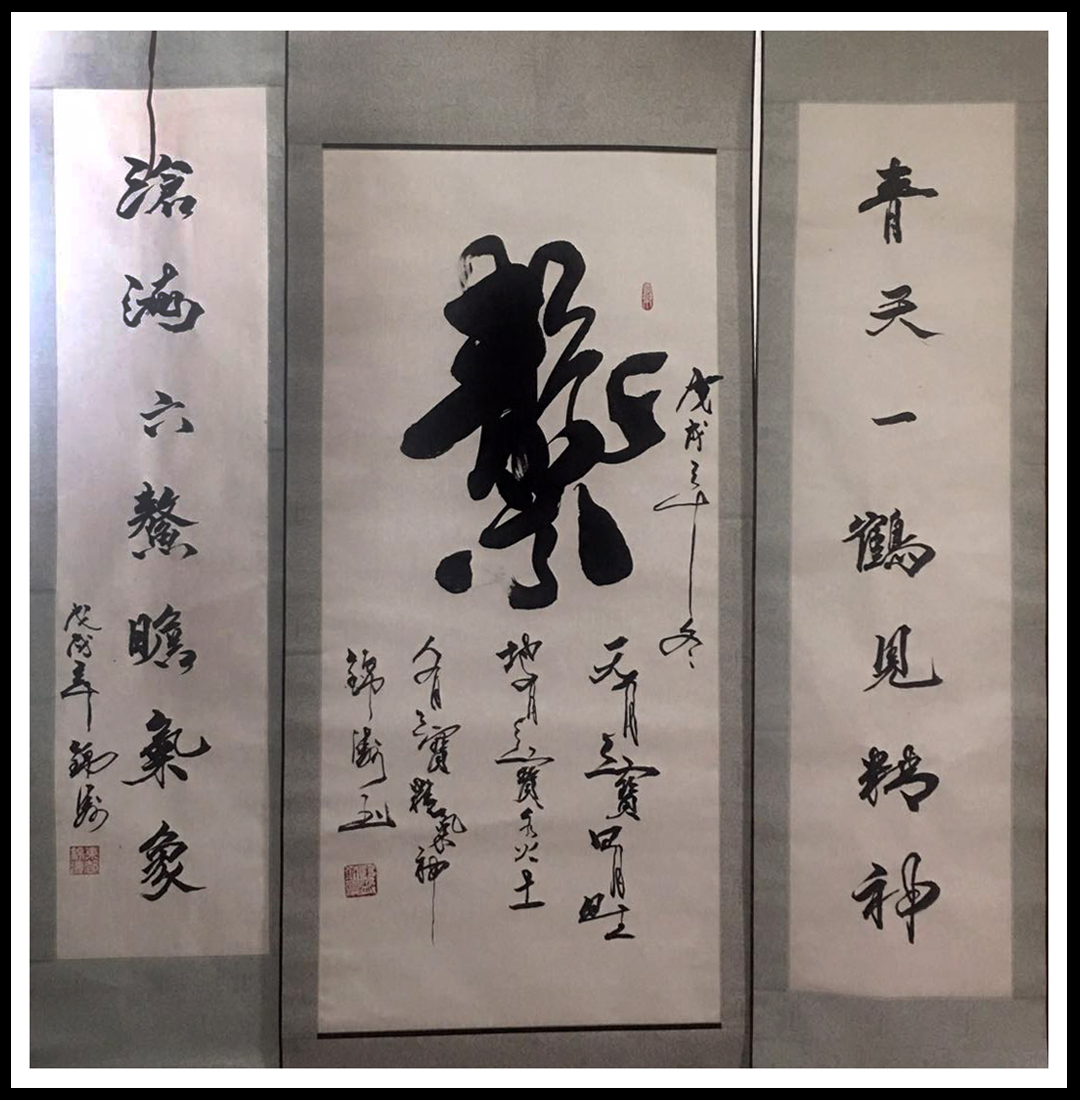 青天一鶴見精神
戊戌之年冬
天有三寶日月星
地有三寶水火土
人有三寶精氣神
錦
滄海六鰲瞻氣象
戊戌年錦